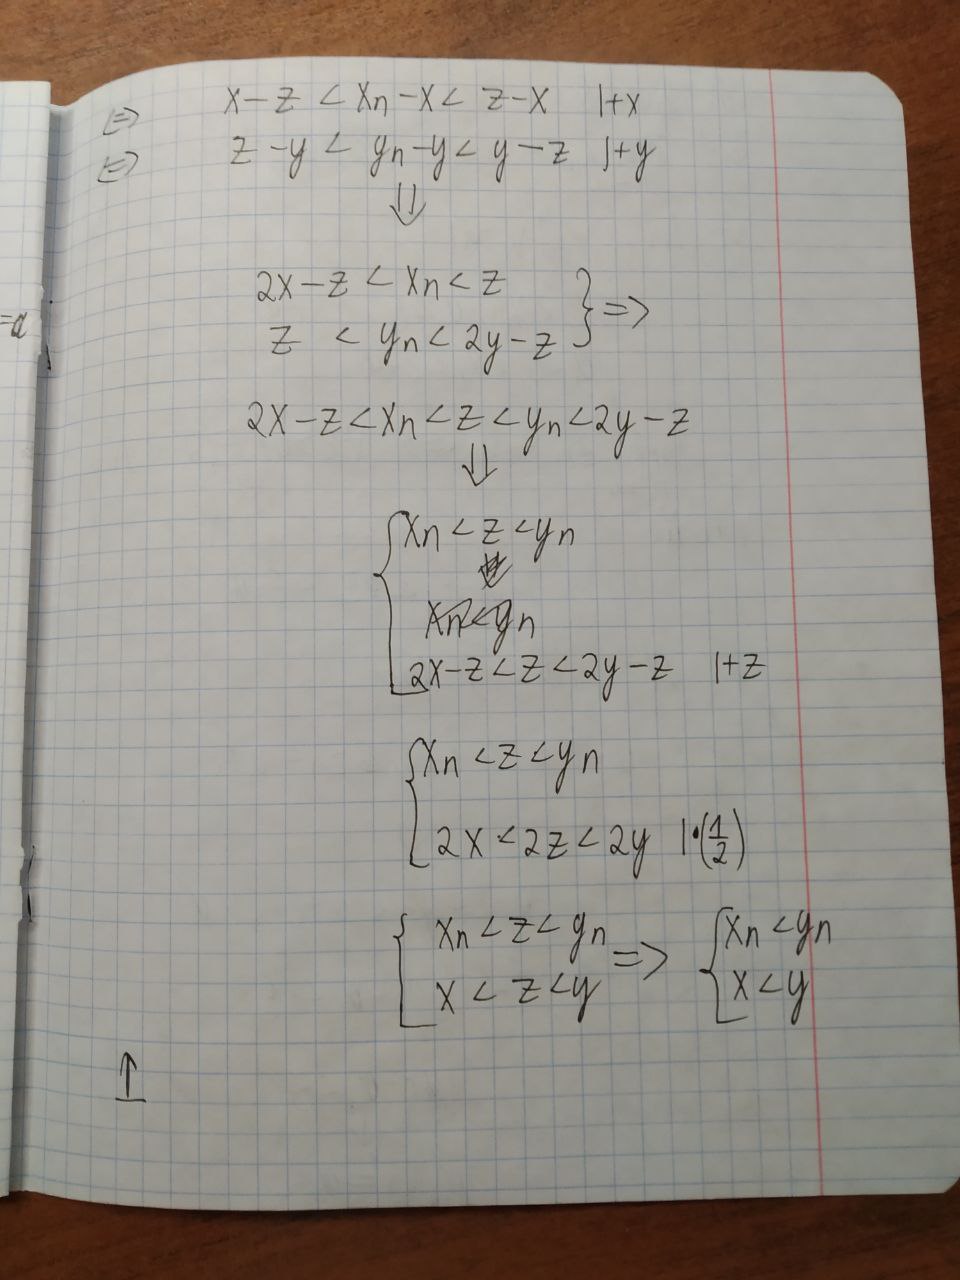 ⇔ x-z < xn-x < z-x |+x
⇔ z-y < yn-y < y-z |+y
⇓
2x-z < xn < z
z < yn < 2y-z } =>
2x-z < xn < z < yn < 2y-z
⇓
{ xn < z < yn
xn < yn
2x-z < z < 2y-z |+z
{ xn < z < yn
2x < 2z < 2y |·(1/2)
{ xn < z < yn => { xn < yn
x < z < y x < y
↑
=a